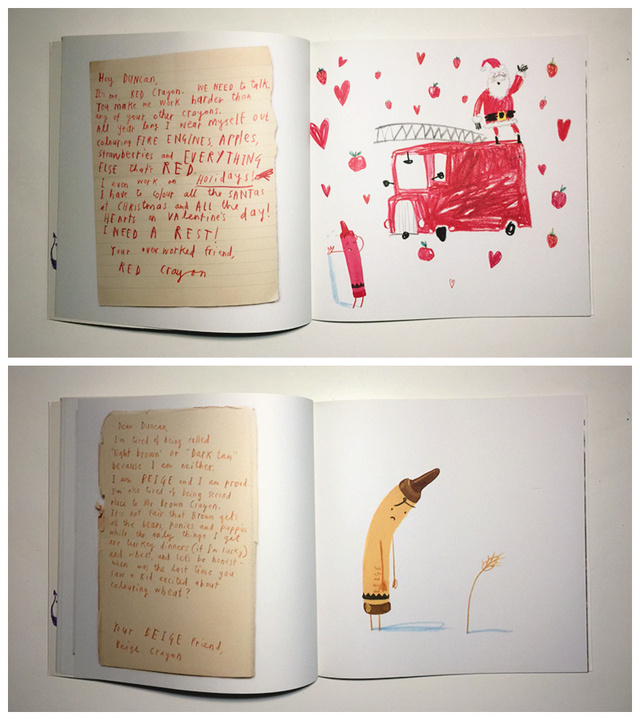 Hey DUNCAN,
It's me, RED Crayon. WE NEED to talk.
You make me work harder than
any of your other crayons.
All year long I wear myself out
colouring FIRE ENGINES, Apples,
Strawberries and EVERYTHING
ELSE that's RED.
I even work on Holidays!
I have to colour all the SANTAS
at CHRistmas and ALL the
HEARTS on VAlentine's day!
I NEED A REST!
Your overworked friend,
RED Crayon
Dear Duncan,
I'm tired of being called
"light brown" or "DaRk tan"
because I am neither.
I am BEIGE and I am proud.
I'm also tired of being second
place to Mr. Brown Crayon.
It's not fair that Brown gets
all the bears, ponies and puppies
while the only things I get
are turkey dinners (if I'm lucky)
and wheat, and let's be honest -
when was the last time you
saw a kid excited about
colouring wheat?
Your BEIGE friend,
Beige Crayon